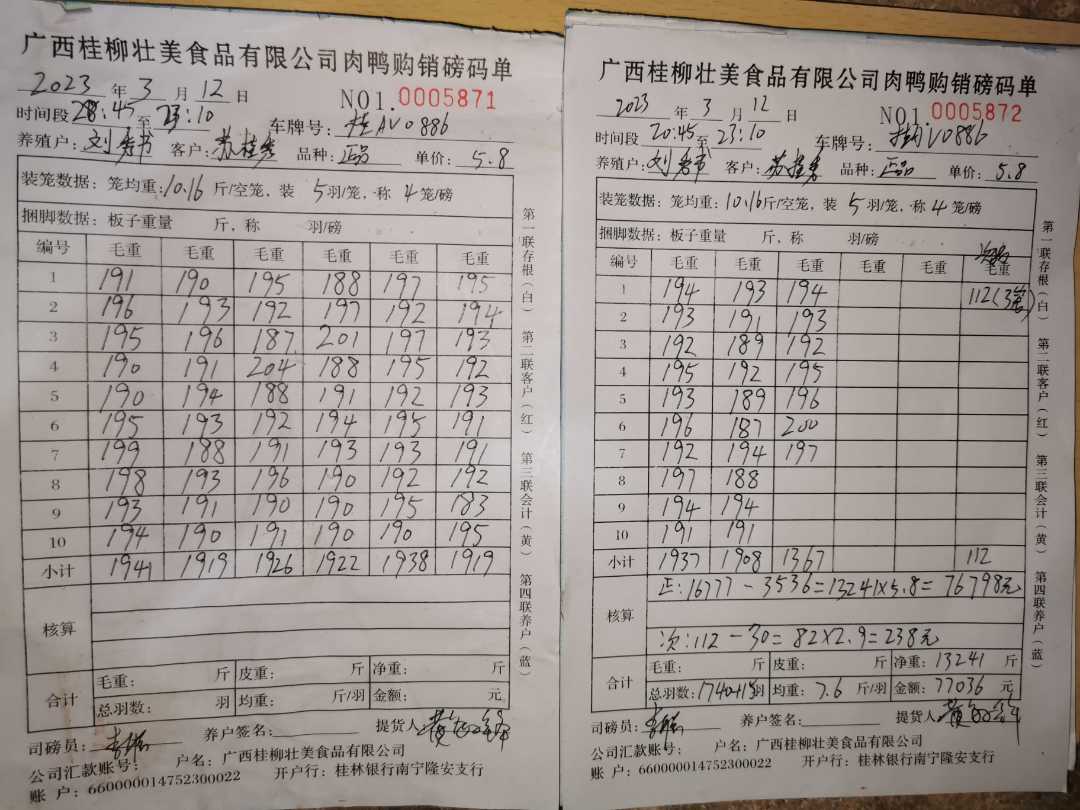 广西桂柳壮美食品有限公司肉鸭购销磅码单
2023 年 3 月 12 日 NO1. 0005871
时间段 20:45 至 23:10 车牌号: 桂AV0886
养殖户: 刘秀书 客户: 苏桂秀 品种: 正品 单价: 5.8
装笼数据: 笼均重: 10.16 斤/空笼, 装 5 羽/笼, 称 4 笼/磅
捆脚数据: 板子重量 斤, 称 羽/磅
编号 毛重 毛重 毛重 毛重 毛重 毛重
1 191 190 195 188 197 195
2 196 193 192 197 192 194
3 195 196 187 201 197 193
4 190 191 204 188 195 192
5 190 194 188 191 192 193
6 195 193 192 194 195 191
7 199 188 191 193 193 191
8 198 193 196 190 192 192
9 193 191 190 190 195 183
10 194 190 191 190 190 195
小计 1941 1919 1926 1922 1938 1919
核算
合计 毛重: 斤 皮重: 斤 净重: 斤
总羽数: 羽 均重: 斤/羽 金额: 元
司磅员: 养户签名: 提货人
公司汇款账号: 户名: 广西桂柳壮美食品有限公司
账 户: 660000014752300022 开户行: 桂林银行南宁隆安支行
第一联存根(白) 第二联客户(红) 第三联会计(黄) 第四联养户(蓝)
广西桂柳壮美食品有限公司肉鸭购销磅码单
2023 年 3 月 12 日 NO1. 0005872
时间段 20:45 至 23:10 车牌号: 桂AV0886
养殖户: 刘秀书 客户: 苏桂秀 品种: 正品 单价: 5.8
装笼数据: 笼均重: 10.16 斤/空笼, 装 5 羽/笼, 称 4 笼/磅
捆脚数据: 板子重量 斤, 称 羽/磅
编号 毛重 毛重 毛重 毛重 毛重 毛重
1 194 193 194 112(3笼)
2 193 191 193
3 192 189 192
4 195 192 195
5 193 189 196
6 196 187 200
7 192 194 197
8 197 188
9 194 194
10 191 191
小计 1937 1908 1367 112
核算 正: 16777 - 3536 = 13241 × 5.8 = 76798元
次: 112 - 30 = 82 × 2.9 = 238元
合计 毛重: 斤 皮重: 斤 净重: 13241 斤
总羽数: 1740+15 羽 均重: 7.6 斤/羽 金额: 77036 元
司磅员: 养户签名: 提货人
公司汇款账号: 户名: 广西桂柳壮美食品有限公司
账 户: 660000014752300022 开户行: 桂林银行南宁隆安支行
第一联存根(白) 第二联客户(红) 第三联会计(黄) 第四联养户(蓝)